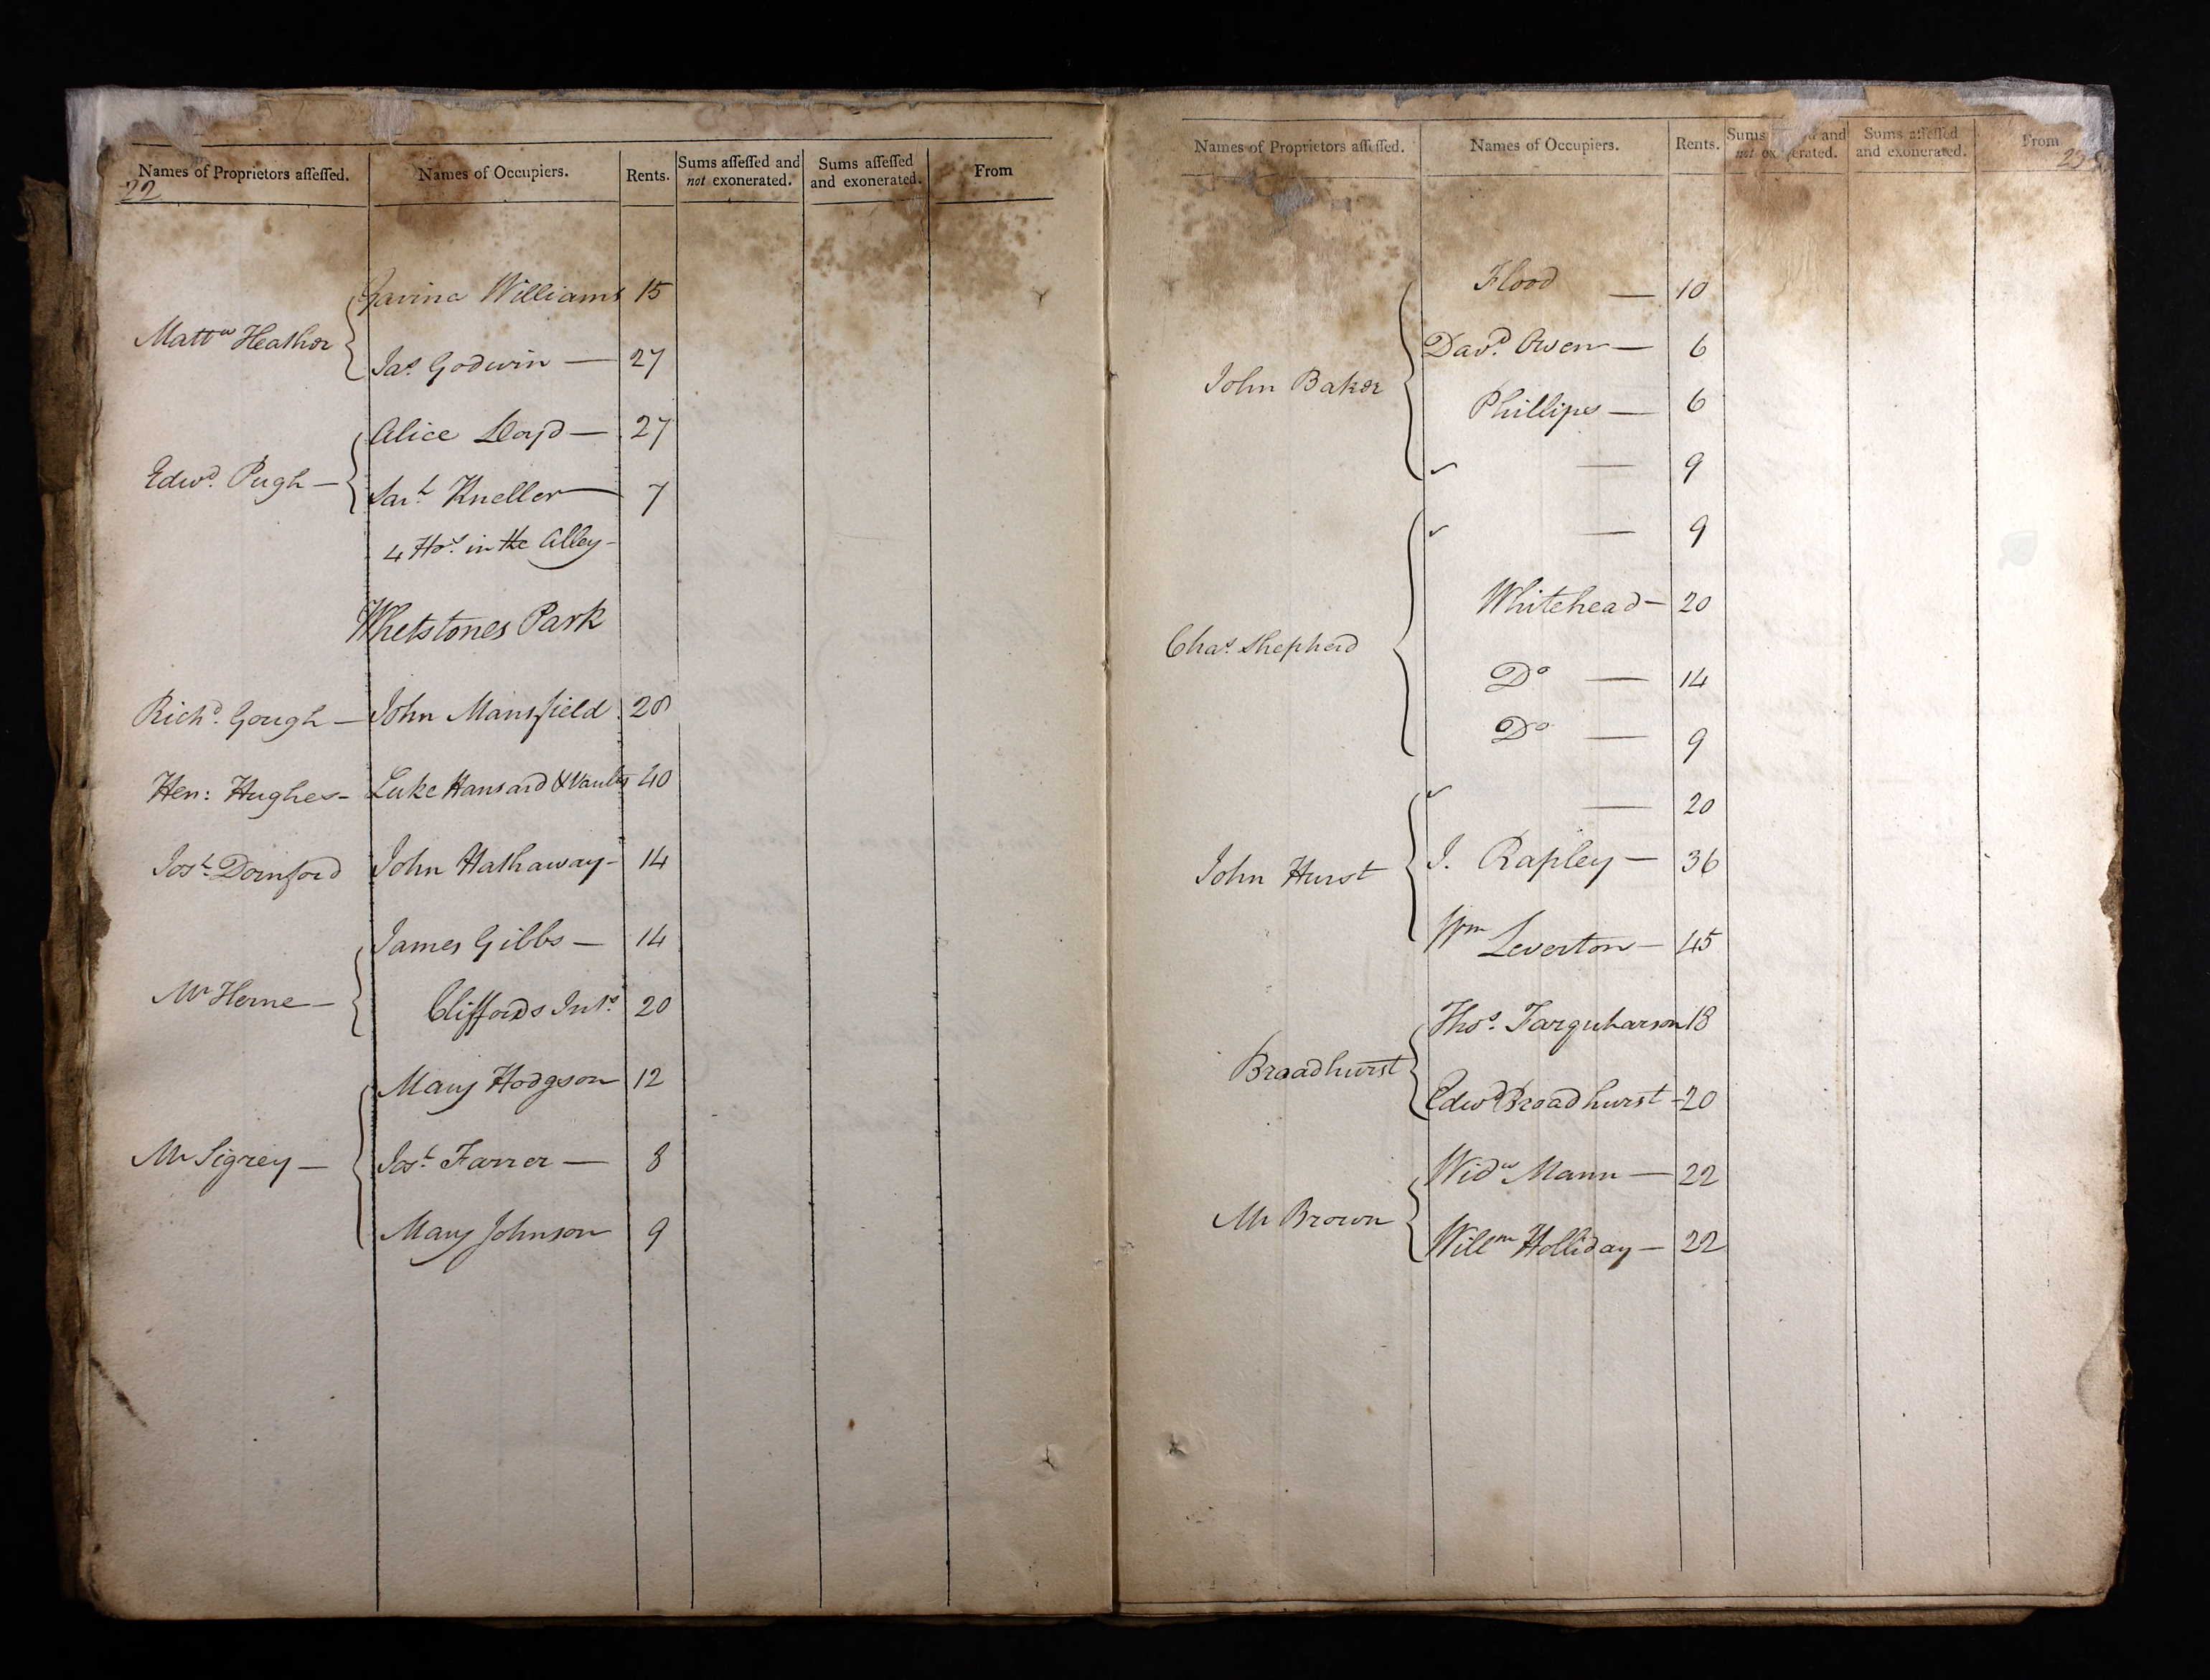 Names of Proprietors aſſeſſed. Names of Occupiers. Rents. Sums aſſeſſed and not exonerated. Sums aſſeſſed and exonerated. From
22
Williams 15
Mattw Heather
Jas. Godwin — 27
Alice Lloyd — 27
Edwd. Pugh —
Sarh. Kneller — 7
4 Hos. in the Alley -
Whetstones Park
Richd. Gough — John Mansfield 20
Hen: Hughes - Luke Hansard & Vaults 40
Josh. Dornford John Hathaway - 14
James Gibbs — 14
Mr Herne —
Cliffords 20
Mary Hodgson 12
Mr Sigrey —
Josh. Farrer — 8
Mary Johnson 9
Names of Proprietors aſſeſſed. Names of Occupiers. Rents. Sums and not exonerated. Sums aſſeſſed and exonerated. From
23
Flood — 10
Davd. Owen — 6
John Baker
Phillips — 6
— 9
— 9
Whitehead - 20
Chas. Shepherd
Do — 14
Do — 9
— 20
John Hurst J. Rapley — 36
Wm Leverton — 45
Thos. Farquharson 18
Broadhurst
Edwd Broadhurst - 20
Widw Mann — 22
Mr Brown
Willm Holliday — 22